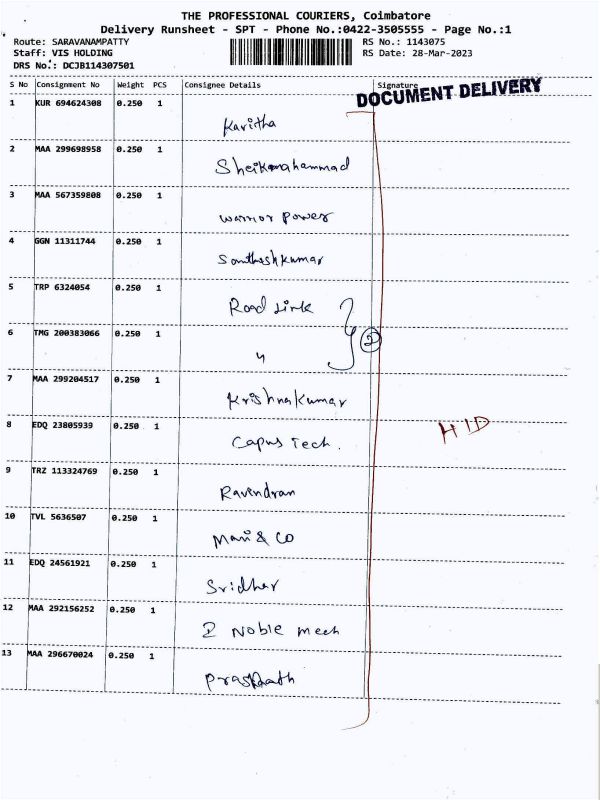 THE PROFESSIONAL COURIERS, Coimbatore
Delivery Runsheet - SPT - Phone No.:0422-3505555 - Page No.:1
Route: SARAVANAMPATTY RS No.: 1143075
Staff: VIS HOLDING RS Date: 28-Mar-2023
DRS No.: DCJB114307501
S No Consignment No Weight PCS Consignee Details Signature
DOCUMENT DELIVERY
1 KUR 694624308 0.250 1
Kavitha
2 MAA 299698958 0.250 1
Sheikmahammad
3 MAA 567359808 0.250 1
Warrior Power
4 GGN 11311744 0.250 1
Santhoshkumar
5 TRP 6324054 0.250 1
Road Link
6 TMG 200383066 0.250 1
2
7 MAA 299204517 0.250 1
Krishnakumar
8 EDQ 23805939 0.250 1
HID
Capus Tech.
9 TRZ 113324769 0.250 1
Ravendran
10 TVL 5636507 0.250 1
Mani & Co
11 EDQ 24561921 0.250 1
Sridhar
12 MAA 292156252 0.250 1
Noble mech
13 MAA 296670024 0.250 1